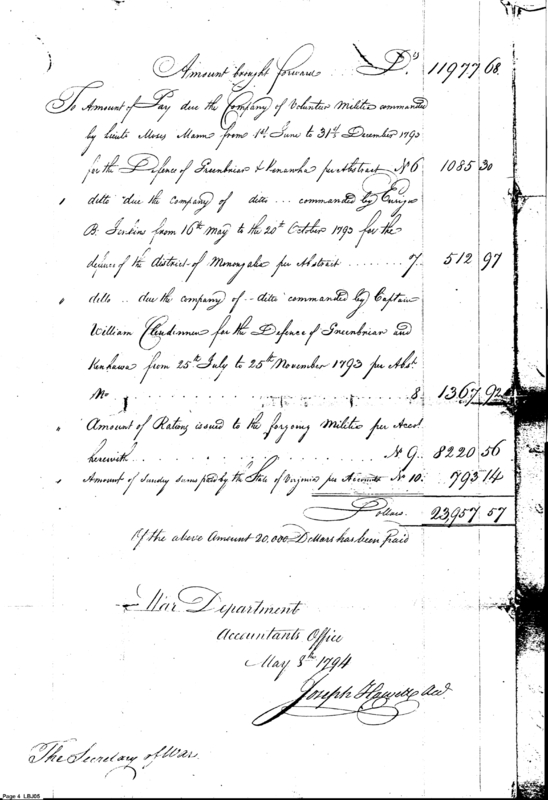 Amount brought forward . . . . D.rs 11977 68.
To Amount of Pay due the Company of Volunteer Militia commanded
by Lieut Moses Mann from 1st June to 31st December 1793
for the Defence of Greenbriar & Kenawha per Abstract No 6 1085 30
" ditto due the Company of ditto . . . commanded by Ensign
B. Jenkins from 16th May to the 20th October 1793 for the
defence of the district of Monongalia per Abstract . . . . . . 7. 512 97
" ditto . . due the company of - ditto commanded by Captain
William Clendinnen for the Defence of Greenbriar and
Kenhawa from 25th July to 25th November 1793 per Abst
No . . . . 8. 1367 92
" Amount of Rations issued to the forgoing Militia per Acct
herewith . . . . No 9. . 8220 56
" Amount of sundry sums paid by the State of Virginia per Accounts No 10. 793 14
Dollars. 23,957 57
Of the above Amount 20,000 Dollars has been paid
War Department
Accountants Office
May 8th 1794
Joseph Howell Acct.
The Secretary of War.
Page 4 LBJ05